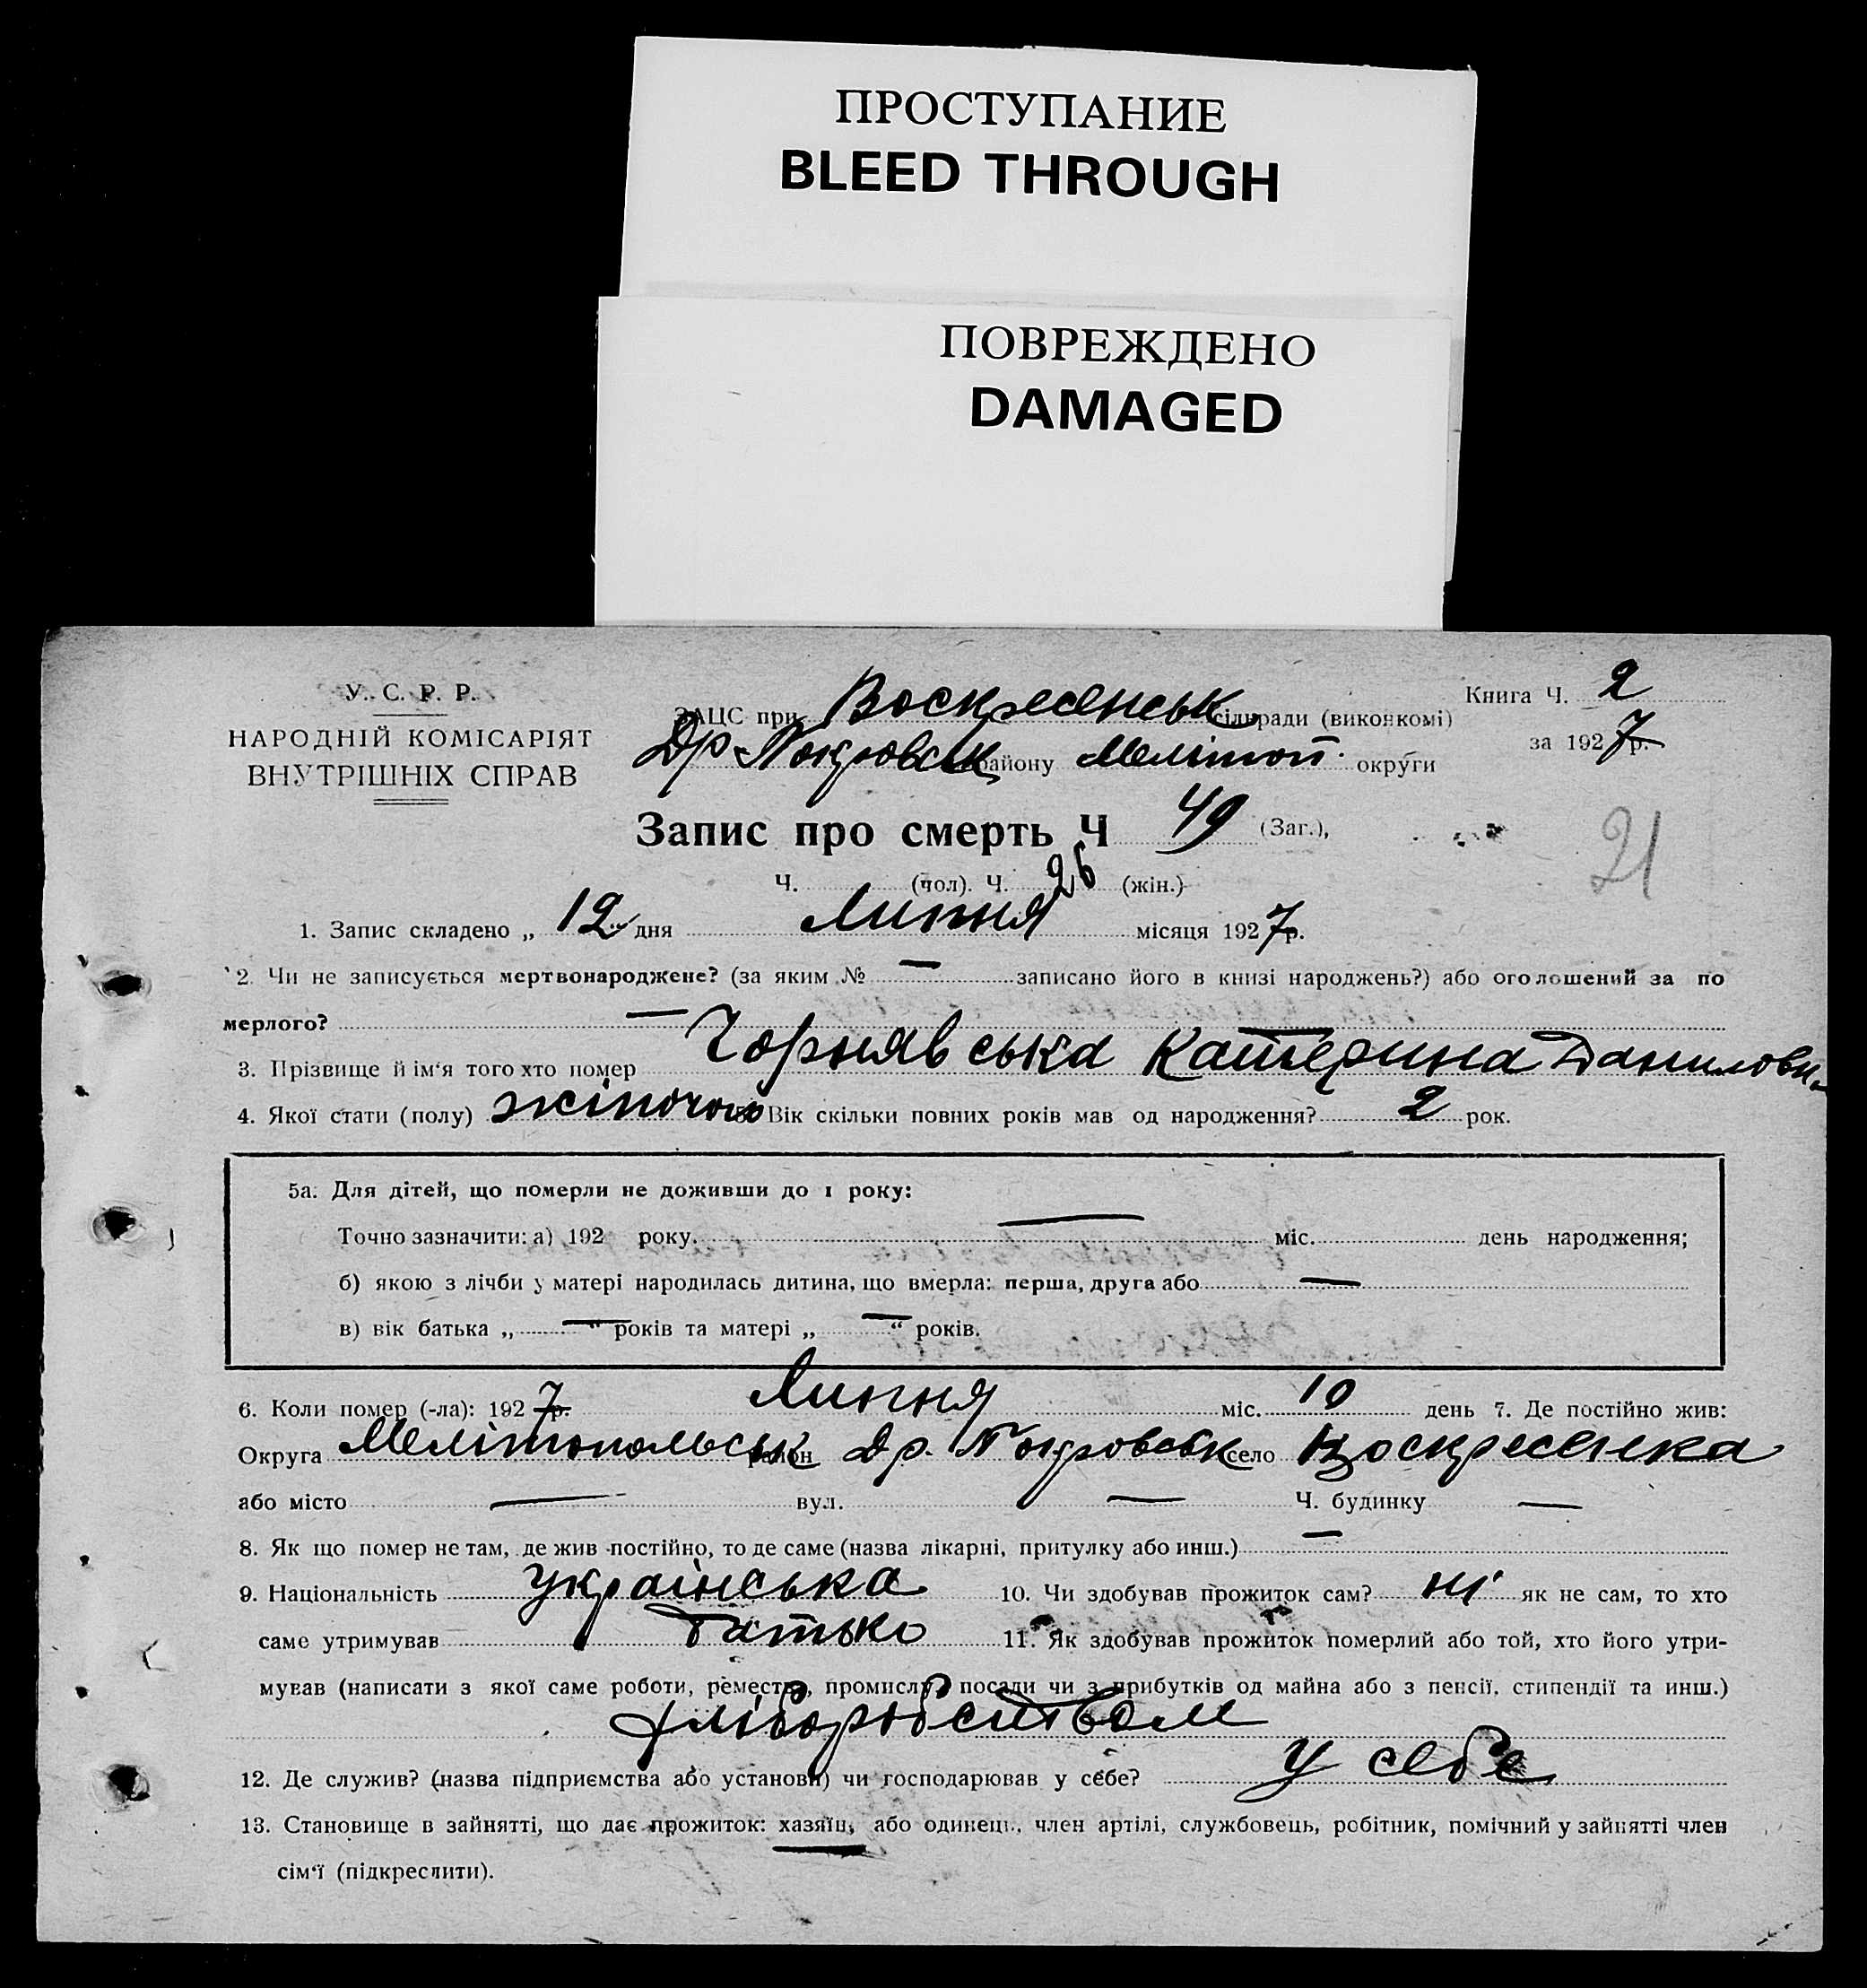 ПРОСТУПАНИЕ
BLEED THROUGH
ПОВРЕЖДЕНО
DAMAGED
У. С. Р. Р.
НАРОДНІЙ КОМІСАРІЯТ
ВНУТРІШНІХ СПРАВ
ЗАЦС при Воскресенськ сільради (виконкомі)
Др-Покровськ району Меліtоп. округи
Книга Ч. 2
за 1927р.
Запис про смерть Ч 49 (Заг.),
21
Ч. (чол). Ч. 26 (жін.)
1. Запис складено „ 12 " дня Липня місяця 1927р.
2. Чи не записується мертвонароджене? (за яким № — записано його в книзі народжень?) або оголошений за по
мерлого? —
3. Прізвище й ім'я того хто помер Чорнявська Катерина Данилови-
4. Якої стати (полу) жіночого 5. Вік скільки повних років мав од народження? 2 рок.
5а. Для дітей, що померли не доживши до 1 року:
Точно зазначити: а) 192 року. — міс. день народження;
б) якою з лічби у матері народилась дитина, що вмерла: перша, друга або —
в) вік батька „ — “ років та матері „ — “ років.
6. Коли помер (-ла): 1927р. Липня міс. 10 день 7. Де постійно жив:
Округа Мелітопольськ район Др. Покровськ село Воскресенка
або місто — вул. — Ч. будинку —
8. Як що помер не там, де жив постійно, то де саме (назва лікарні, притулку або инш.) —
9. Національність українська 10. Чи здобував прожиток сам? ні як не сам, то хто
саме утримував батько 11. Як здобував прожиток померлий або той, хто його утри-
мував (написати з якої саме роботи, ремества, промислу, посади чи з прибутків од майна або з пенсії, стипендії та инш.)
хліборобством
12. Де служив? (назва підприємства або установи) чи господарював у себе? у себе
13. Становище в зайнятті, що дає прожиток: хазяїн, або одинець, член артілі, службовець, робітник, помічний у зайнятті член
сім'ї (підкреслити).